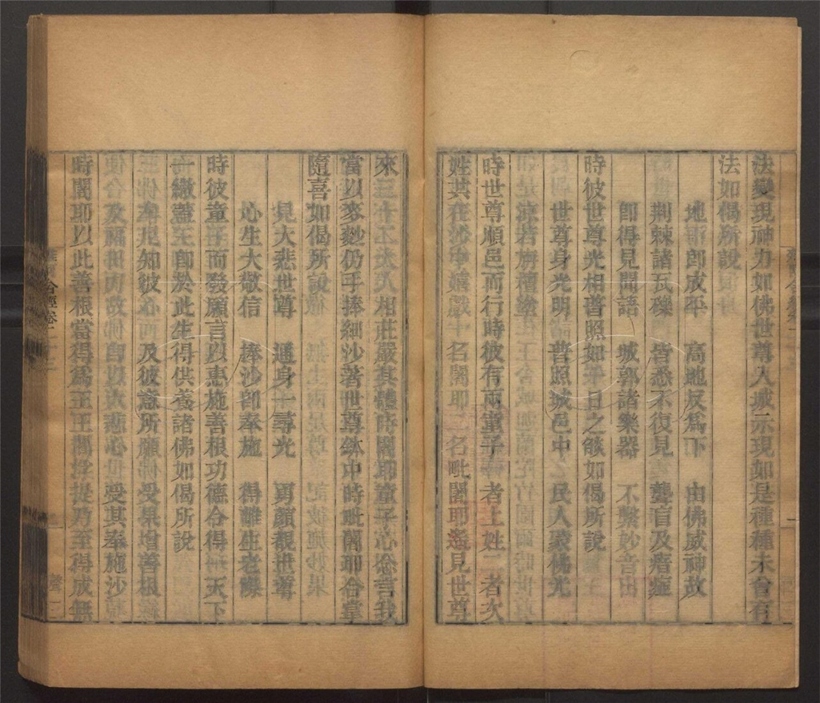 法變現神力如佛世尊入城示現如是種種未曾有
法如偈所說
地下即成平　高地反為下　由佛威神故
荊棘諸瓦礫　皆悉不復見　聾盲及瘖瘂
即得見聞語　城郭諸樂器　不擊妙音出
時彼世尊光相普照如千日之燄如偈所說
世尊身光明　普照城邑中　民人蒙佛光
涼若旃檀塗
時世尊順邑而行時彼有兩童子一者上姓二者次
姓共在沙中嬉戲一名闍耶二名毗闍耶遙見世尊
來三十二大人相莊嚴其體時闍耶童子心念言我
當以麥麨仍手捧細沙著世尊鉢中時毗闍耶合掌
隨喜如偈所說
見大悲世尊　通身一尋光　勇顏覩世尊
心生大敬信　捧沙即奉施　得離生老際
時彼童子而發願言以惠施善根功德令得一天下
一繖蓋王即於此生得供養諸佛如偈所說
牟尼知彼心　及彼意所願　受果增善根
及福田力故　即以大悲心　受其奉施沙
時闍耶以此善根當得為王王閻浮提乃至得成無